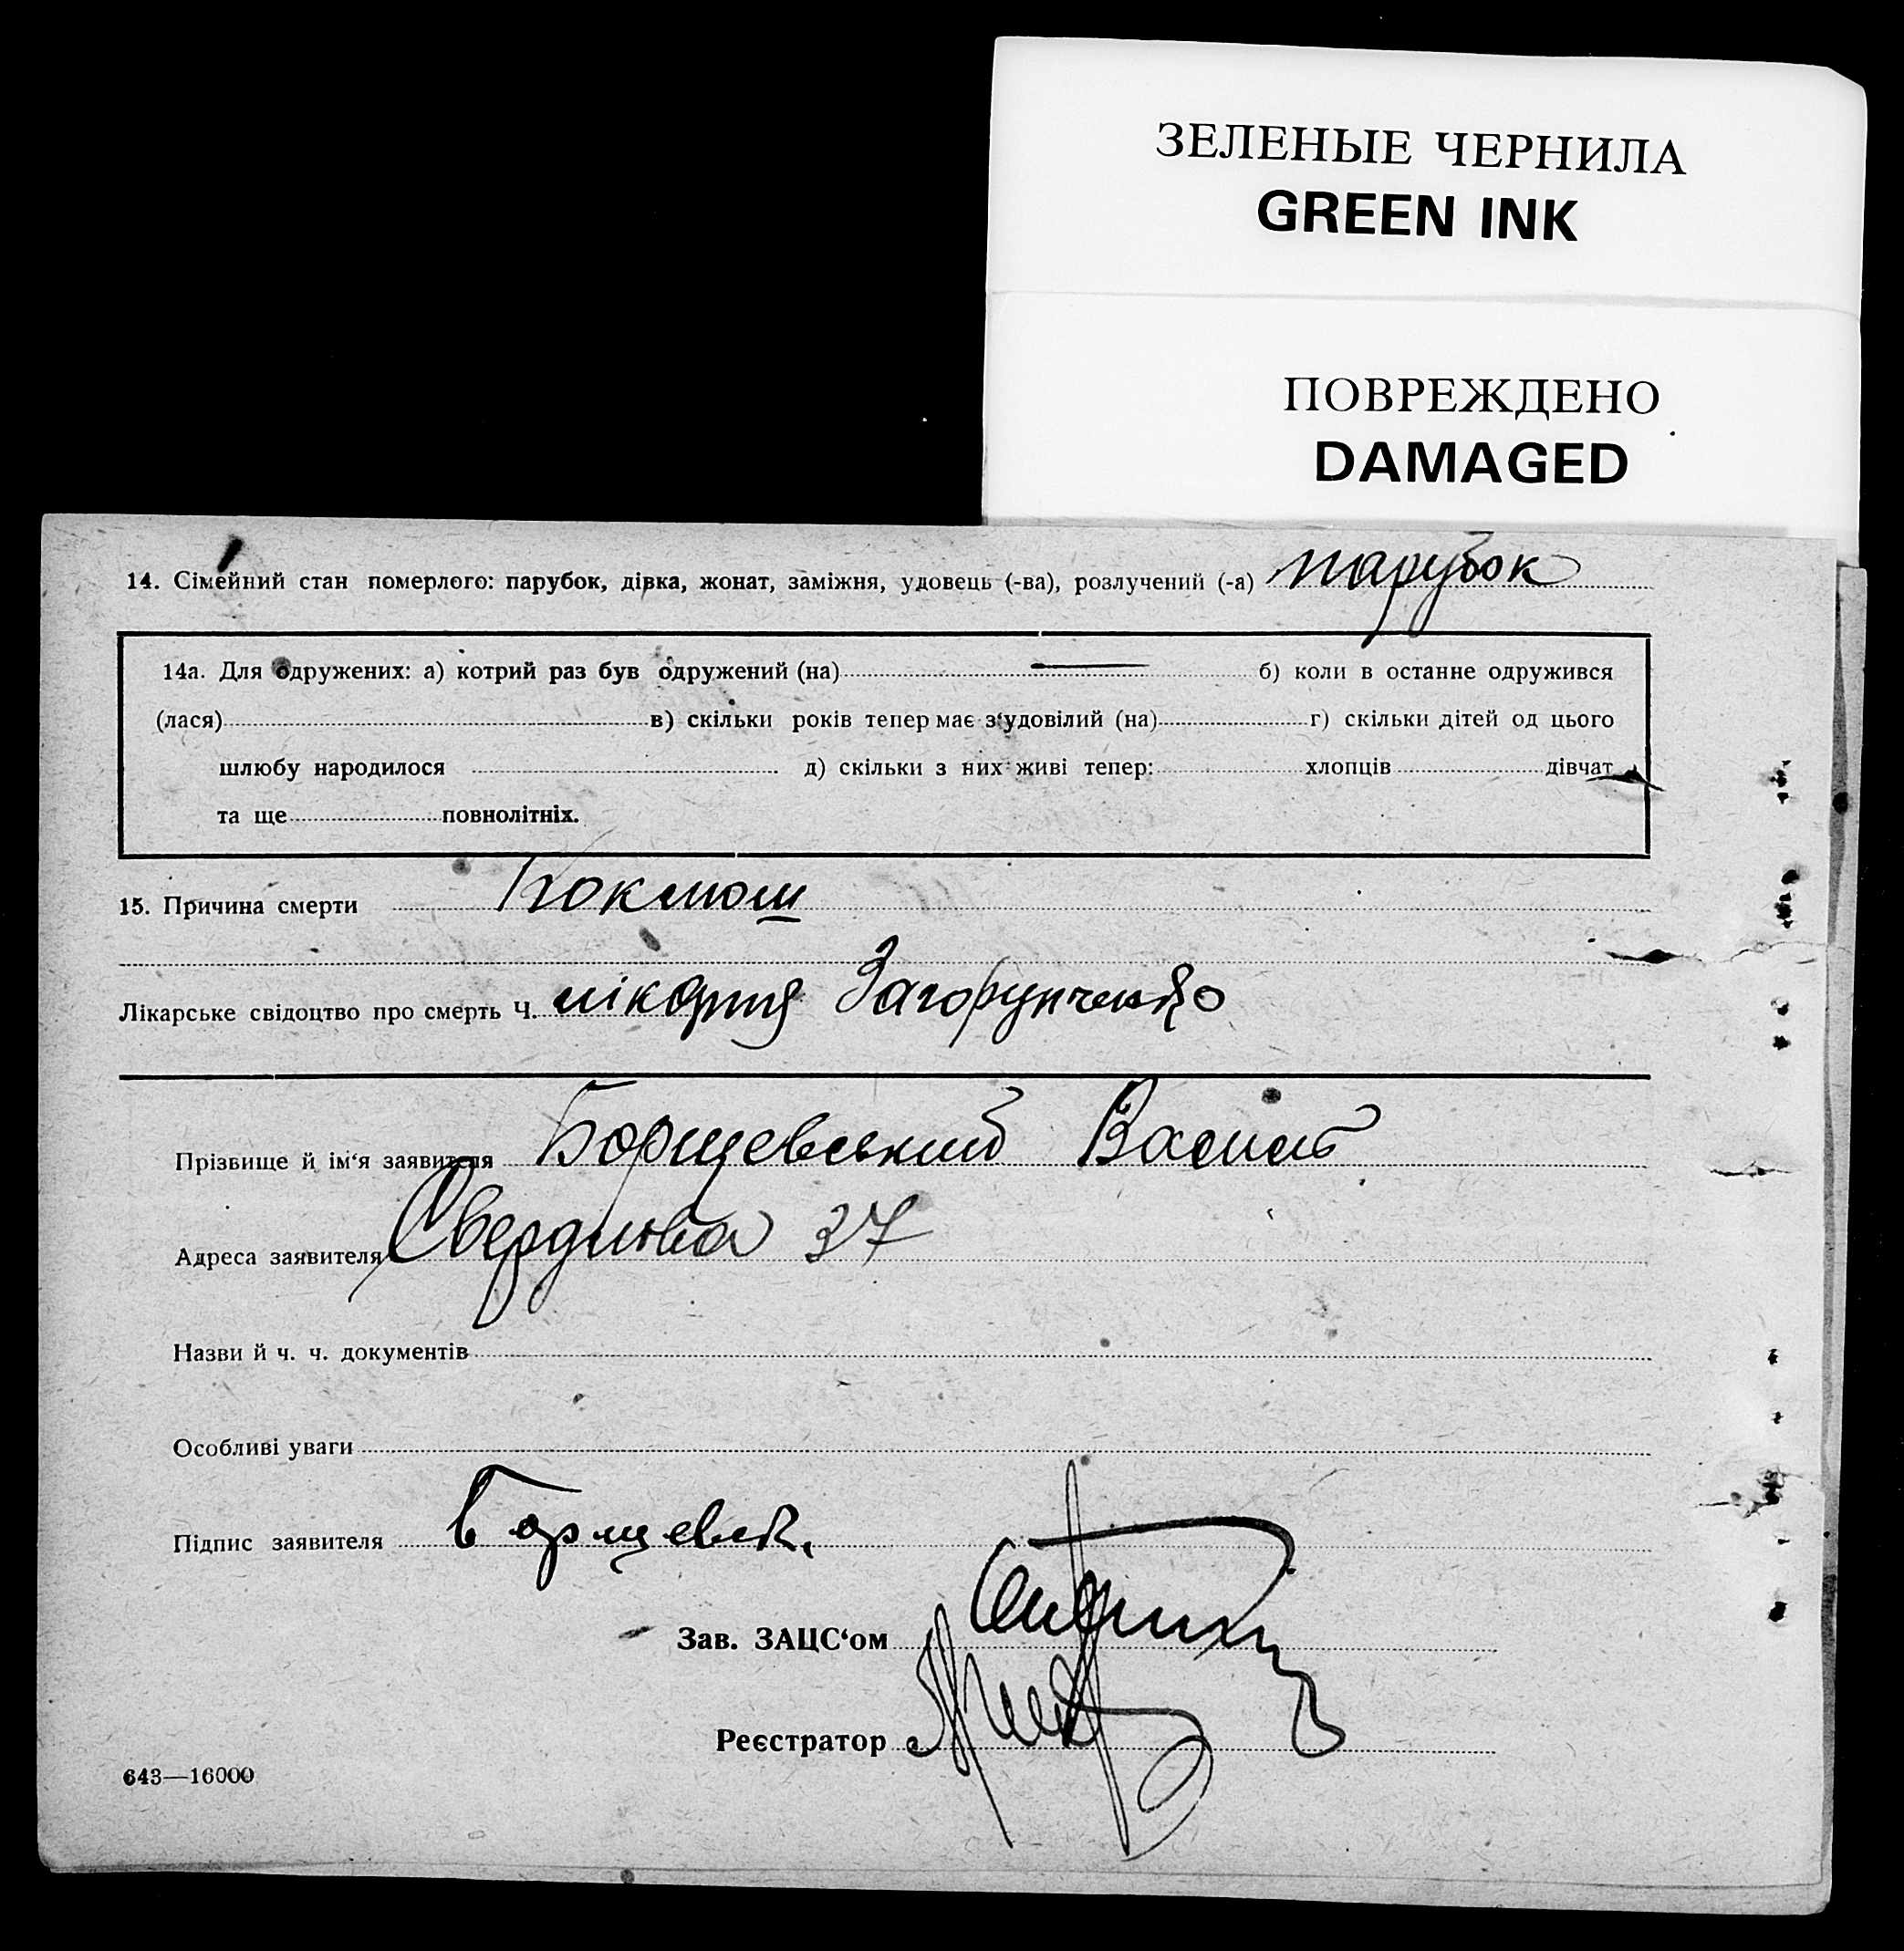 ЗЕЛЕНЫЕ ЧЕРНИЛА
GREEN INK
ПОВРЕЖДЕНО
DAMAGED
14. Сімейний стан померлого: парубок, дівка, жонат, заміжня, удовець (-ва), розлучений (-а) парубок
14а. Для одружених: а) котрий раз був одружений (на) — б) коли в останнє одружився
(лася) в) скільки років тепер має з‘удовілий (на) г) скільки дітей од цього
шлюбу народилося д) скільки з них живі тепер: хлопців дівчат
та ще повнолітніх.
15. Причина смерти Коклюш
Лікарське свідоцтво про смерть Ч. лікаря
Прізвище й ім‘я заявителя Борщевський Василь
Адреса заявителя Свердлова 37
Назви й ч. ч. документів
Особливі уваги
Підпис заявителя
Зав. ЗАЦС‘ом
Реєстратор
643—16000